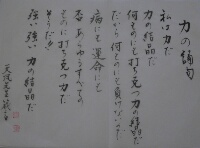 力の誦句
私は力だ
力の結晶だ
何ものにも打ち克つ力の結晶だ
だから何ものにも負けないのだ
病にも運命にも
否あらゆるすべての
ものに打ち克つ力だ
そうだ!!
強い強い力の結晶だ